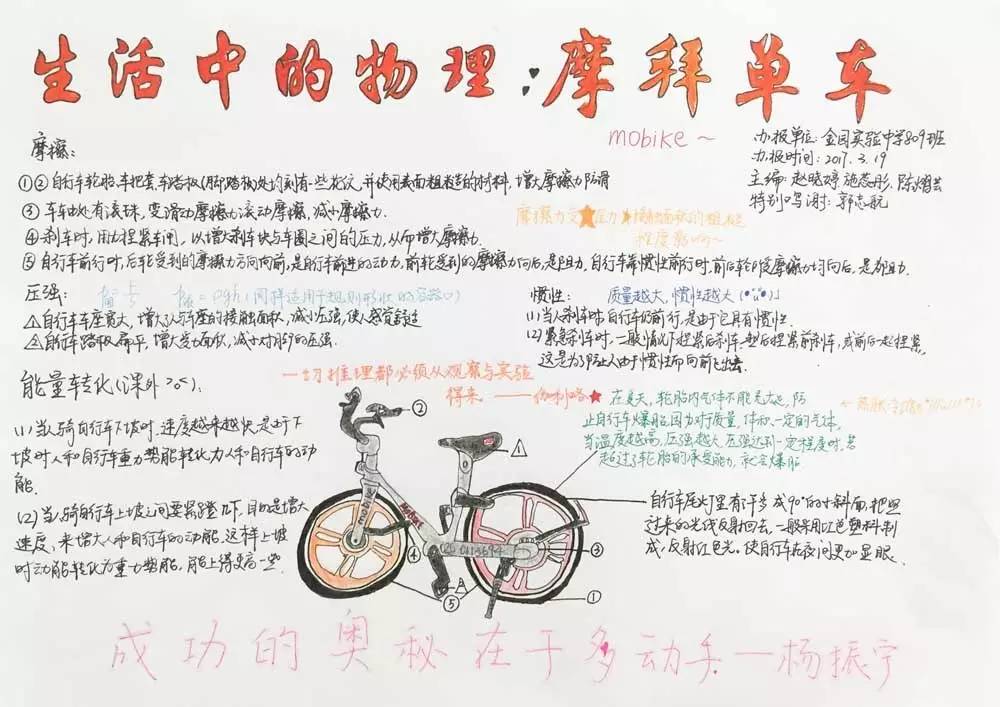 生活中的物理:摩拜单车
mobike~
办报单位:金园实验中学809班
办报时间:2017.3.19
主编:赵晓婷,施蕊彤,陈
特别鸣谢:郭志航
摩擦:
①②自行车轮胎、车把套、车踏板(脚踏板)处均刻有一些花纹,并使用表面粗糙的材料,增大摩擦力防滑
③车轴处有滚珠,变滑动摩擦为滚动摩擦,减小摩擦力.
④刹车时,用力捏紧车闸,以增刹车块与车圈之间的压力,从而增大摩擦力.
摩擦力受★压力★接触面积的粗糙
程度影响~
⑤自行车前行时,后轮受到的摩擦力方向向前,是自行车前进的动力,前轮受到的摩擦力向后,是阻力,自行车靠惯性前行时,前后轮所受摩擦力均向后,是为阻力.
压强:
=ρgh(同样适用于规则形状的容器)
△自行车车座宽大,增大了人与车座的接触面积,减小压强,使人感觉舒适
△自行车踏板扁平,增大受力面积,减小对脚的压强.
惯性:
质量越大,惯性越大
(1)当人刹车时,自行车仍前行,是由于它具有惯性.
(2)紧急刹车时,一般情况下捏紧后刹车,再捏紧前刹车,或前后一起捏紧,
这是为防止人由于惯性而向前飞出去.
能量转化(课外
一切推理都必须从观察与实验
得来.——伽利略
(1)当人骑自行车下坡时,速度越来越快,是由于下
坡时人和自行车重力势能转化为人和自行车的动
能.
(2)当人骑自行车上坡之间要紧蹬几下,目的是增大
速度,来增大人和自行车的动能,这样上坡
时动能转化为重力势能,能上得更高一些.
★在夏天,轮胎内气体不能充太足,防
止自行车爆胎,因为对于质量、体积一定的气体,
当温度越高,压强越大,压强达到一定程度时,若
超过了轮胎的承受能力,就会爆胎
自行车尾灯里有许多成90°的小斜面,把照
过来的光线反射回去,一般采用红色塑料制
成,反射红色光.使自行车在夜间更加显眼.
②
△
mobike
mobike
④
③
△
⑤
①
成功的奥秘在于多动手—杨振宁